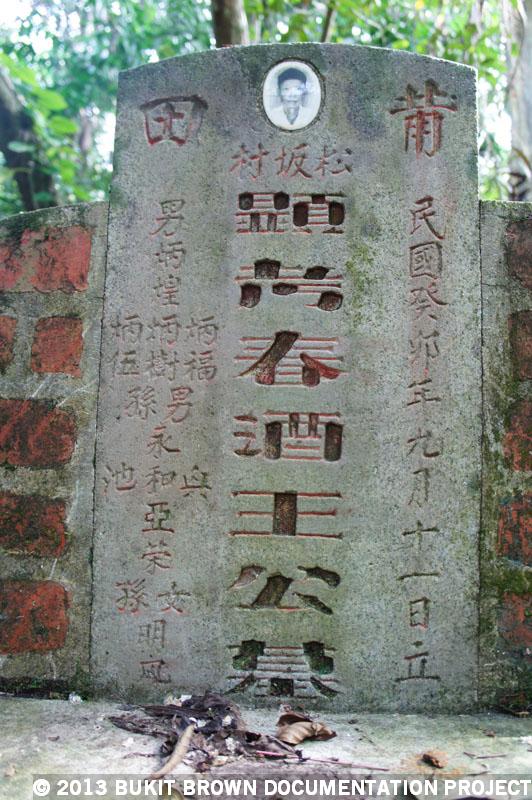 莆田
松坂村
民國癸卯年九月十一日立
顯考春酒王公墓
男炳煌
炳福
炳樹
炳伍
男孫
永和亞荣
與池
女孫
明凤
© 2013 BUKIT BROWN DOCUMENTATION PROJECT